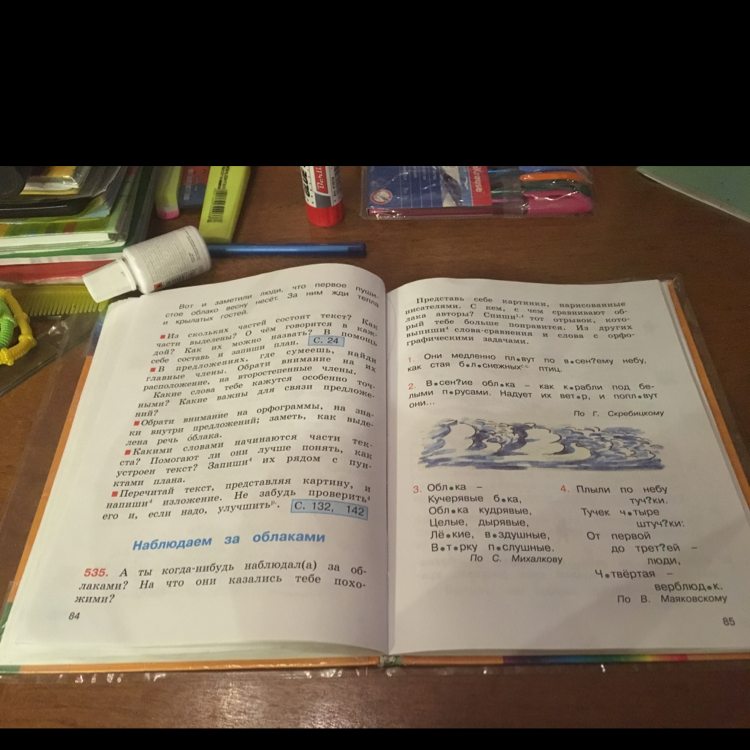 Вот и заметили люди, что первое пуши-
стое облако весну несёт. За ним жди тепло
и крылатых гостей.
■ Из скольких частей состоит текст? Как
части выделены? О чём говорится в каж-
дой? Как их можно назвать? В помощь
себе составь и запиши план. С. 24
■ В предложениях, где сумеешь, найди
главные члены. Обрати внимание на их
расположение, на второстепенные члены.
Какие слова тебе кажутся особенно точ-
ными? Какие важны для связи предложе-
ний?
■ Обрати внимание на орфограммы, на зна-
ки внутри предложений; заметь, как выде-
лена речь облака.
■ Какими словами начинаются части тек-
ста? Помогают ли они лучше понять, как
устроен текст? Запиши⁴ их рядом с пун-
ктами плана.
■ Перечитай текст, представляя картину, и
напиши⁴ изложение. Не забудь проверить⁴
его и, если надо, улучшить. С. 132, 142
Наблюдаем за облаками
535. А ты когда-нибудь наблюдал(а) за об-
лаками? На что они казались тебе похо-
жими?
84
Представь себе картинки, нарисованные
писателями. С кем, с чем сравнивают об-
лака авторы? Спиши тот отрывок, кото-
рый тебе больше понравится. Из других
выпиши⁴ слова-сравнения и слова с орфо-
графическими задачами.
1. Они медленно пл•вут по в•сен?ему небу,
как стая б•л•снежных птиц.
2. В•сен?ие обл•ка – как к•рабли под бе-
лыми п•русами. Надует их вет•р, и попл•вут
они...
По Г. Скребицкому
3. Обл•ка –
Кучерявые б•ка,
Обл•ка кудрявые,
Целые, дырявые,
Лё•кие, в•здушные,
В•т•рку п•слушные.
По С. Михалкову
4. Плыли по небу
туч?ки.
Тучек ч•тыре
штуч?ки:
От первой
до трет?ей –
люди,
Ч•твёртая –
верблюд•к.
По В. Маяковскому
85
Krause